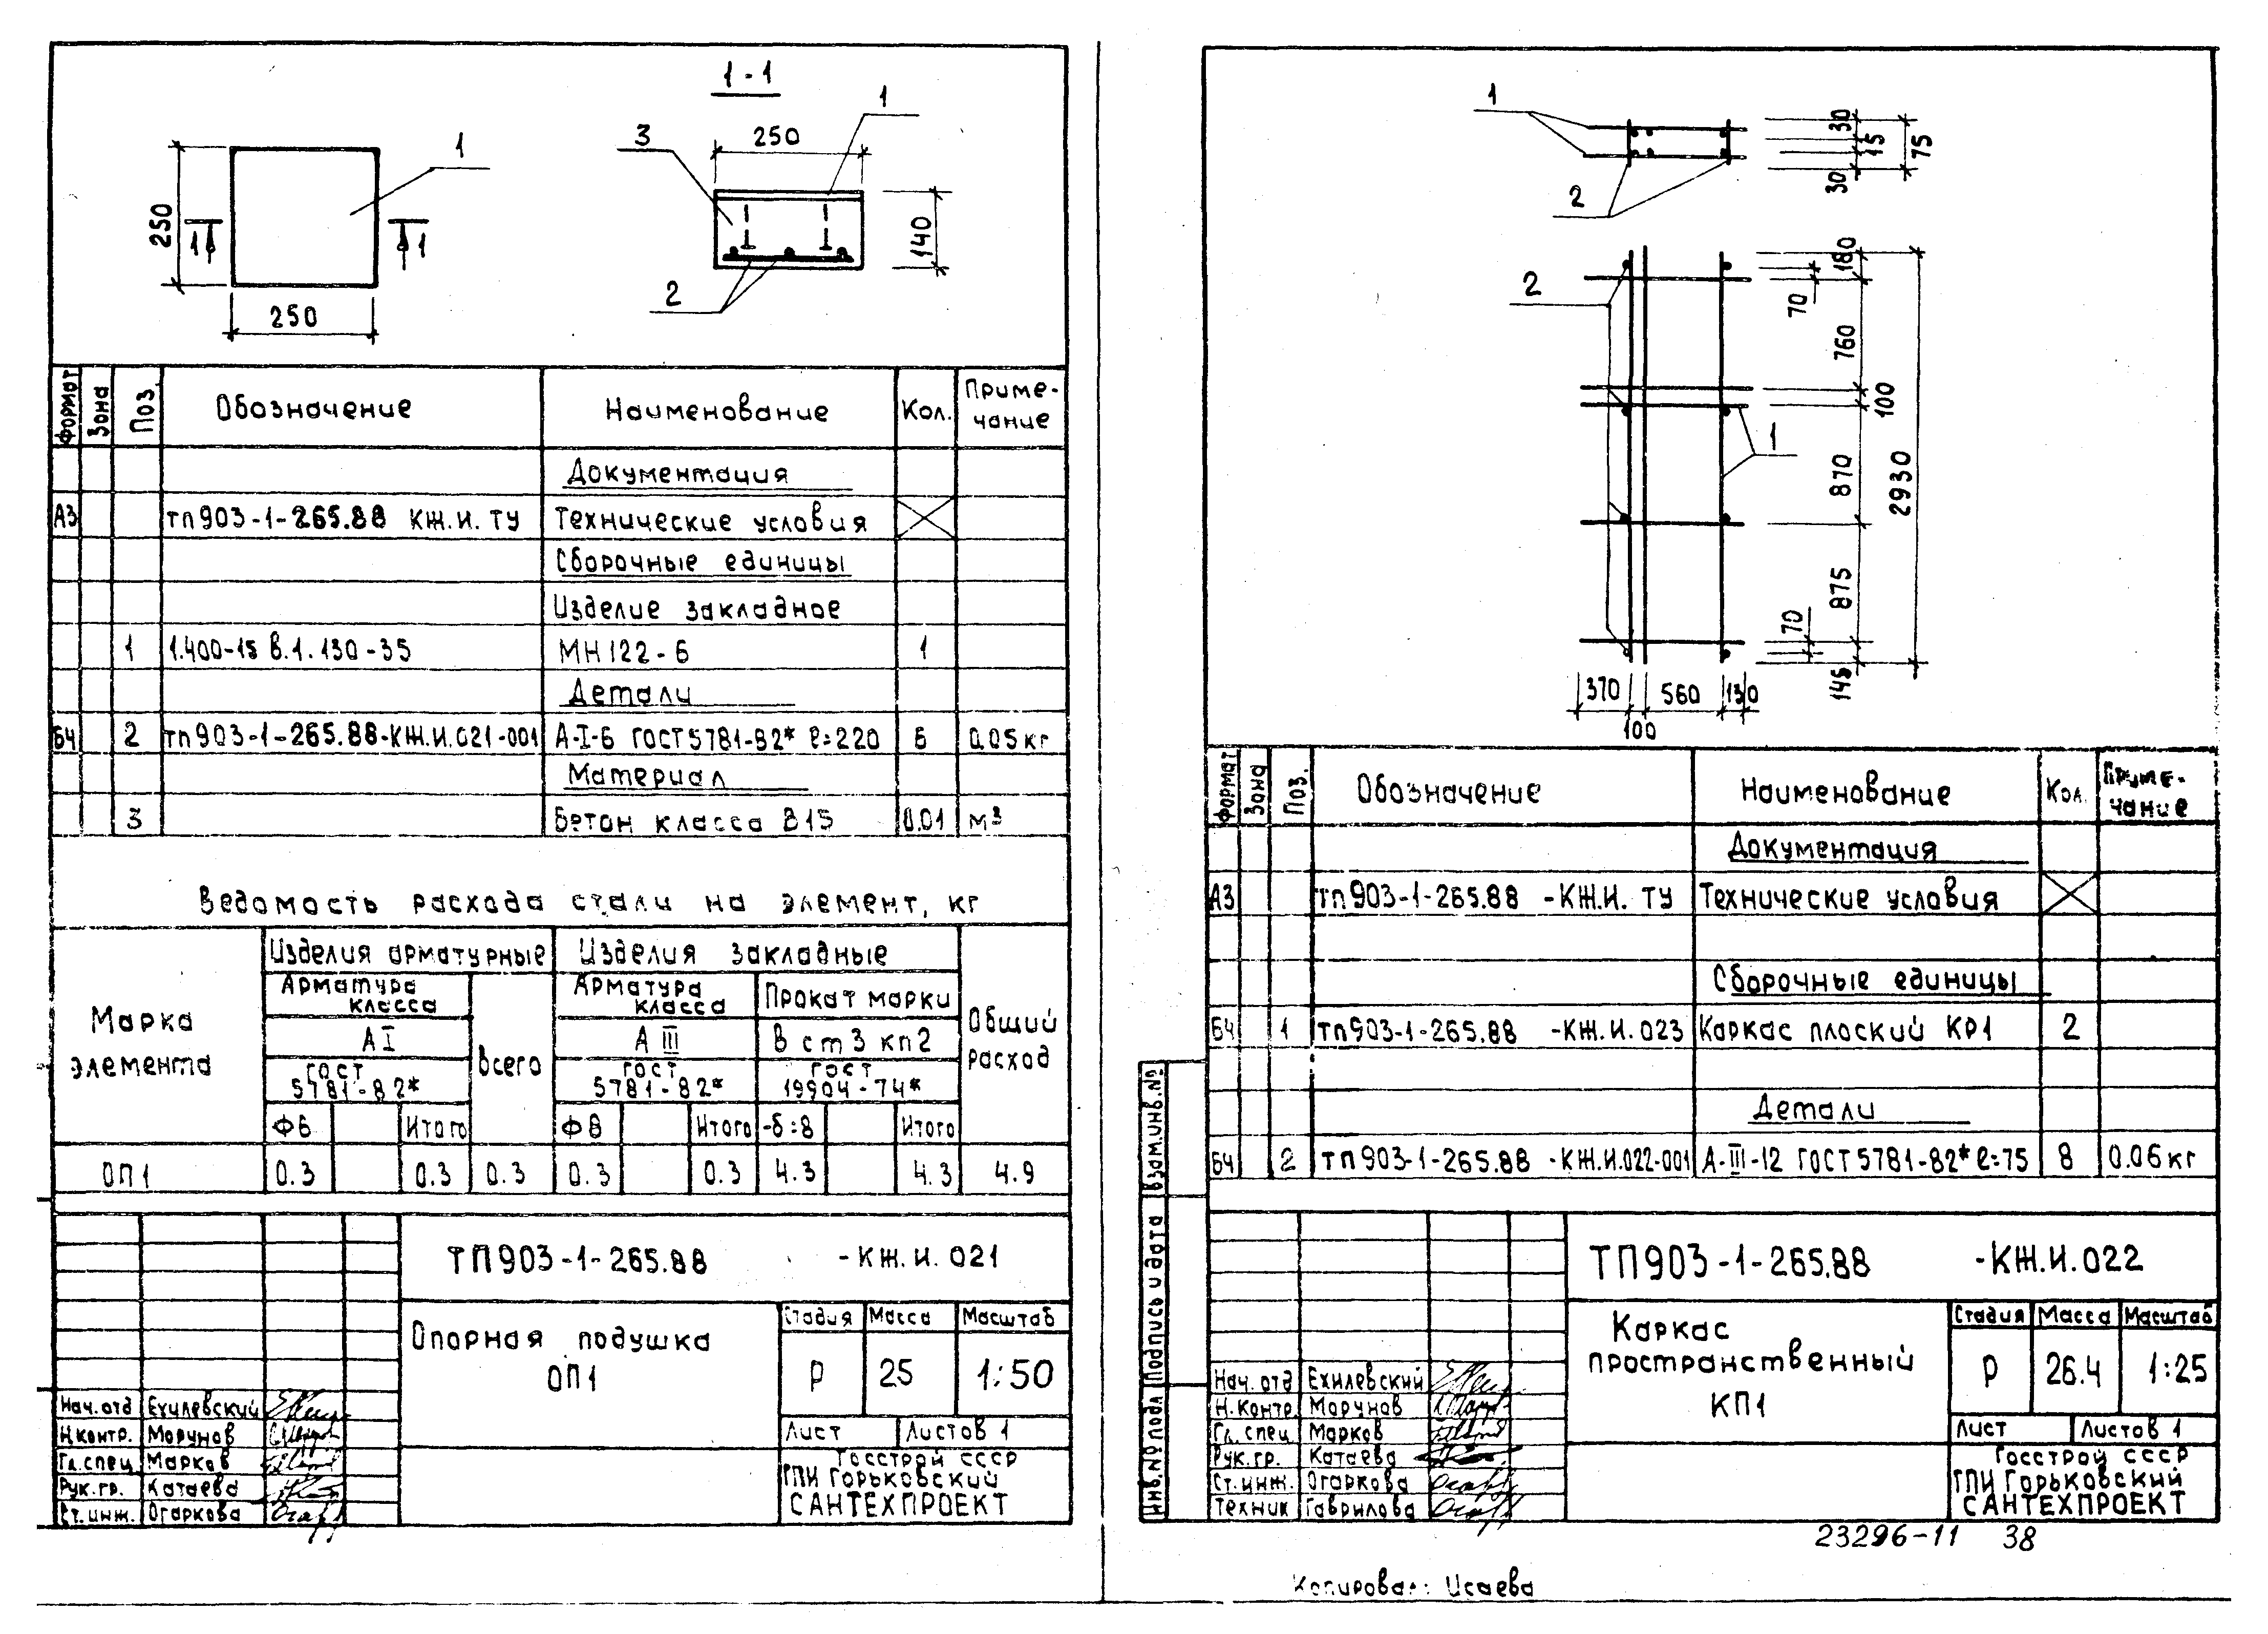 1-1
250
1
1
1
250
3
250
1
140
2
Формат
Зона
Поз.
Обозначение
Наименование
Кол.
Приме-
чание
Документация
А3 ТП903-1-265.88 КЖ.И. ТУ Технические условия
Сборочные единицы
Изделие закладное
1 1.400-15 В.1.130-35 МН122-6 1
Детали
БЧ 2 ТП903-1-265.88-КЖ.И.021-001 А-I-6 ГОСТ5781-82* ℓ=220 6 0.05кг
Материал
3 Бетон класса В15 0.01 м³
Ведомость расхода стали на элемент, кг
Марка
элемента
Изделия арматурные
Изделия закладные
Общий
расход
Арматура
класса
Всего
Арматура
класса
Прокат марки
АI
А III
В ст3 кп2
ГОСТ
5781-82*
ГОСТ
5781-82*
ГОСТ
19904-74*
Ф6 Итого Ф8 Итого -δ=8 Итого
ОП1 0.3 0.3 0.3 0.3 0.3 4.3 4.3 4.9
ТП903-1-265.88 -КЖ.И. 021
Опорная подушка
ОП1
Стадия Масса Масштаб
Р 25 1:50
Лист Листов 1
Госстрой СССР
ГПИ Горьковский
САНТЕХПРОЕКТ
Нач.отд Ехилевский
Н.контр. Морунов
Гл.спец. Марков
Рук.гр. Катаева
Ст.инж. Огаркова
1
2
30
15
30
75
2
1
180
70
760
100
870
2930
875
70
145
370 560 130
100
Формат
Зона
Поз.
Обозначение
Наименование
Кол.
Приме-
чание
Документация
А3 ТП903-1-265.88 -КЖ.И. ТУ Технические условия
Сборочные единицы
БЧ 1 ТП903-1-265.88 -КЖ.И. 023 Каркас плоский КР1 2
Детали
БЧ 2 ТП903-1-265.88 -КЖ.И.022-001 А-III-12 ГОСТ5781-82* ℓ=75 8 0.06кг
Взам.инв.№
Подпись и дата
Инв.№ подл
ТП903-1-265.88 -КЖ.И.022
Каркас
пространственный
КП1
Стадия Масса Масштаб
Р 26.4 1:25
Лист Листов 1
Госстрой СССР
ГПИ Горьковский
САНТЕХПРОЕКТ
Нач.отд Ехилевский
Н.контр. Морунов
Гл.спец. Марков
Рук.гр. Катаева
Ст.инж. Огаркова
Техник Гаврилова
23296-11 38
Копировал: Исаева